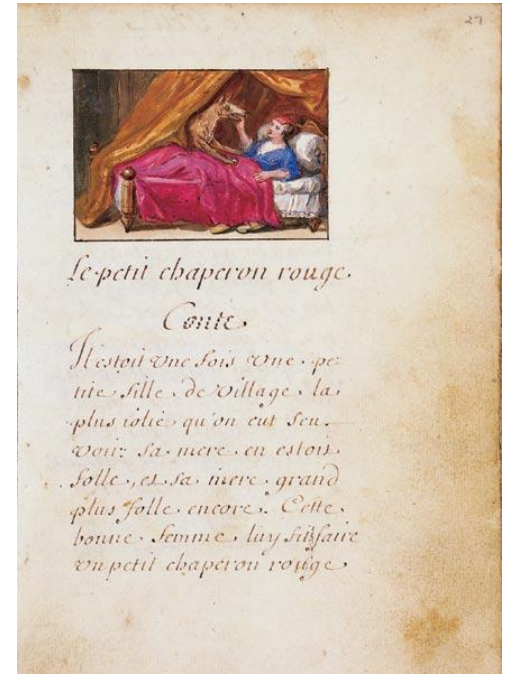 27
Le petit chaperon rouge.
Conte.
Il estoit une fois une pe-
tite fille de village la
plus iolie qu'on eut sceu
voir: sa mere en estoit
folle, et sa mere grand
plus folle encore. Cette
bonne femme luy fit faire
un petit chaperon rouge